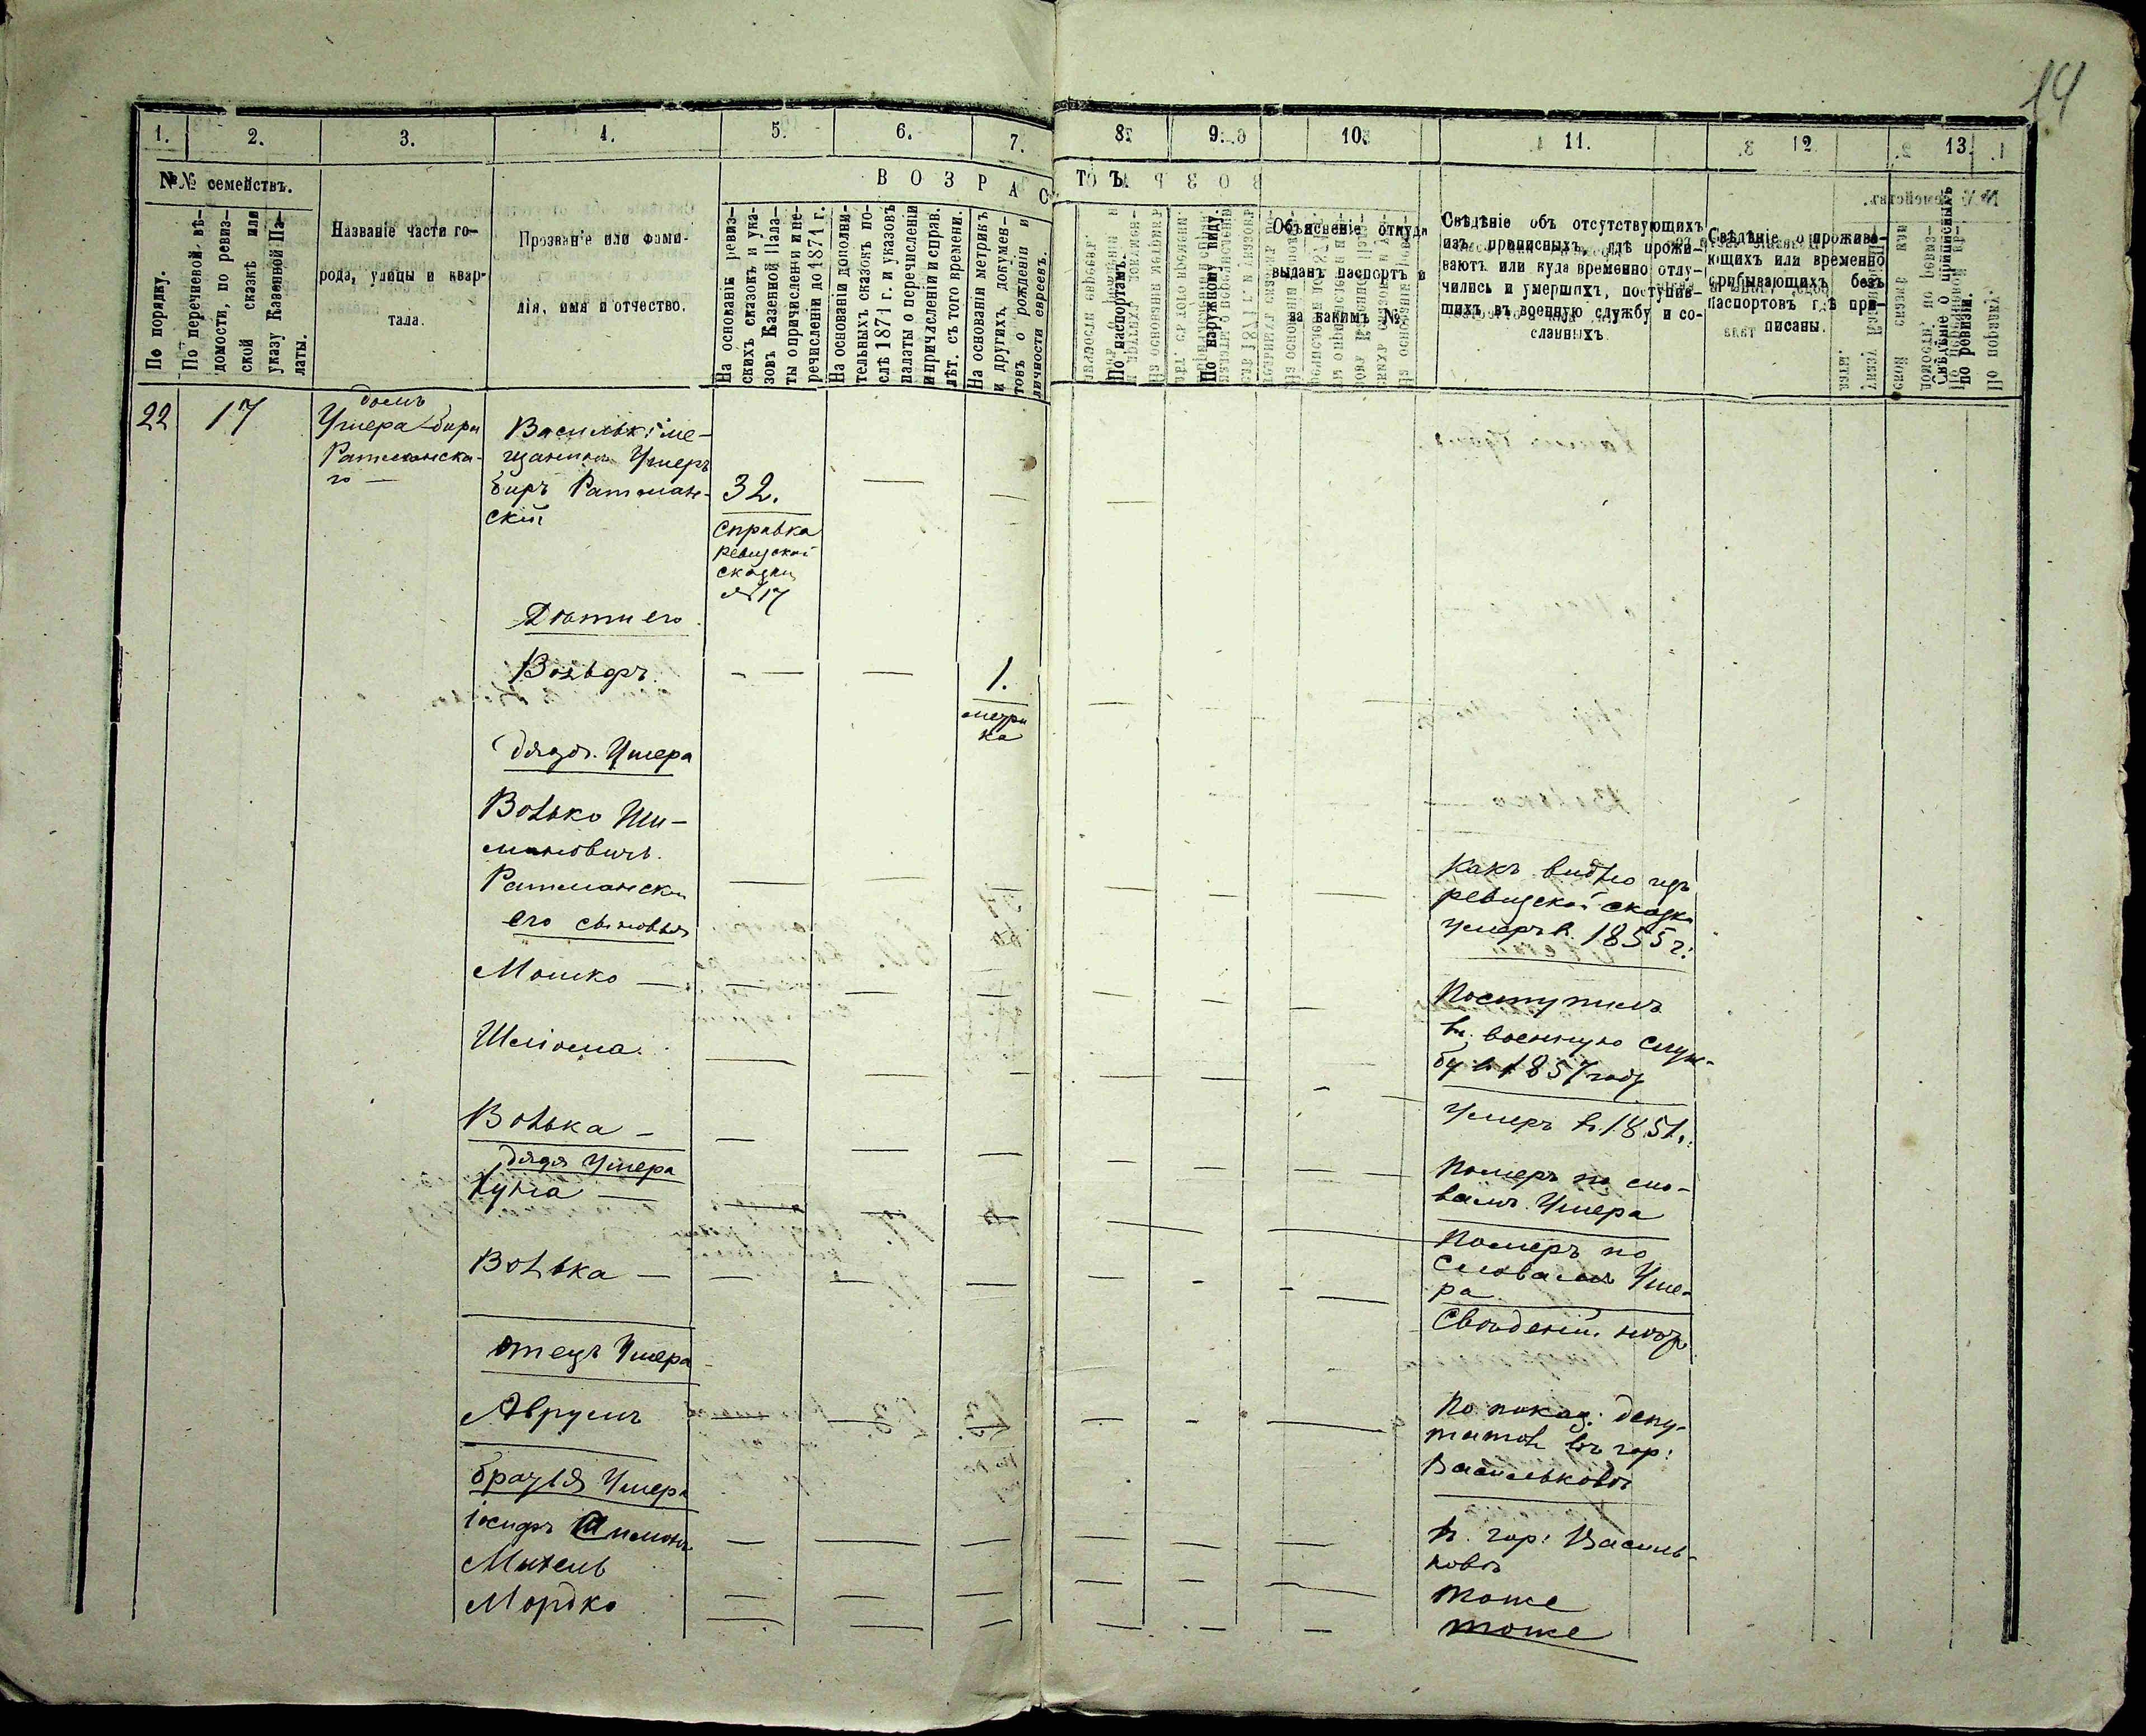 14
1. 2. 3. 4. 5. 6. 7. 8. 9. 10. 11. 12 13.
№№ семействъ.
По порядку.
По перечневой вѣ-
домости, по ревиз-
ской сказкѣ или
указу Казенной Па-
латы.
Названіе части го-
рода, улицы и квар-
тала.
Прозваніе или фами-
лія, имя и отчество.
ВОЗРАСТЪ
На основаніи ревиз-
скихъ сказокъ и ука-
зовъ Казенной Пала-
ты о причисленіи и пе-
речисленіи до 1871 г.
На основаніи дополни-
тельныхъ сказокъ по-
слѣ 1871 г. и указовъ
палаты о перечисленіи
и причисленіи и справ.
лѣт. съ того времени.
На основаніи метрикъ
и другихъ докумен-
товъ о рожденіи и
личности евреевъ.
По паспортамъ.
По наружному виду.
Объясненіе откуда
выданъ паспортъ и
за какимъ №
Свѣдѣніе объ отсутствующихъ
изъ приписныхъ, гдѣ прожи-
ваютъ или куда временно отлу-
чились и умершихъ, поступив-
шихъ въ военную службу и со-
сланныхъ.
Свѣдѣніе о прожива-
ющихъ или временно
прибывающихъ безъ
паспортовъ гдѣ при-
писаны.
Свѣдѣніе о приписныхъ
по ревизіи.
22 17
домъ
Умера
Ратманска-
го —
Васильк: ме-
щанинъ Умеръ
Ратман-
скій
32.
справка
ревизской
сказки
№ 17
Дѣти его
Вольфъ.
1.
метри
ка
дядя Умера
Волько Ши-
мановичъ
Ратмански
его сыновья
Какъ видно изъ
ревизской сказки
умеръ в. 1855 г.
Мошко —
Поступилъ
въ военную служ-
бу в 1857 году
Шліома.
умеръ в. 1851.
Волька —
Померъ по сло-
вамъ Умера
дядя Умера
—
Померъ по
словамъ Уме-
ра
Волька —
Свѣдений нѣтъ
отецъ Умера
Аврумъ
По показ: депу-
татовъ въ гор:
Васильковѣ
братья Умера
Іосифъ Шимонъ
в. гор: Василь-
ковѣ
Михель
тоже
Мордко
тоже